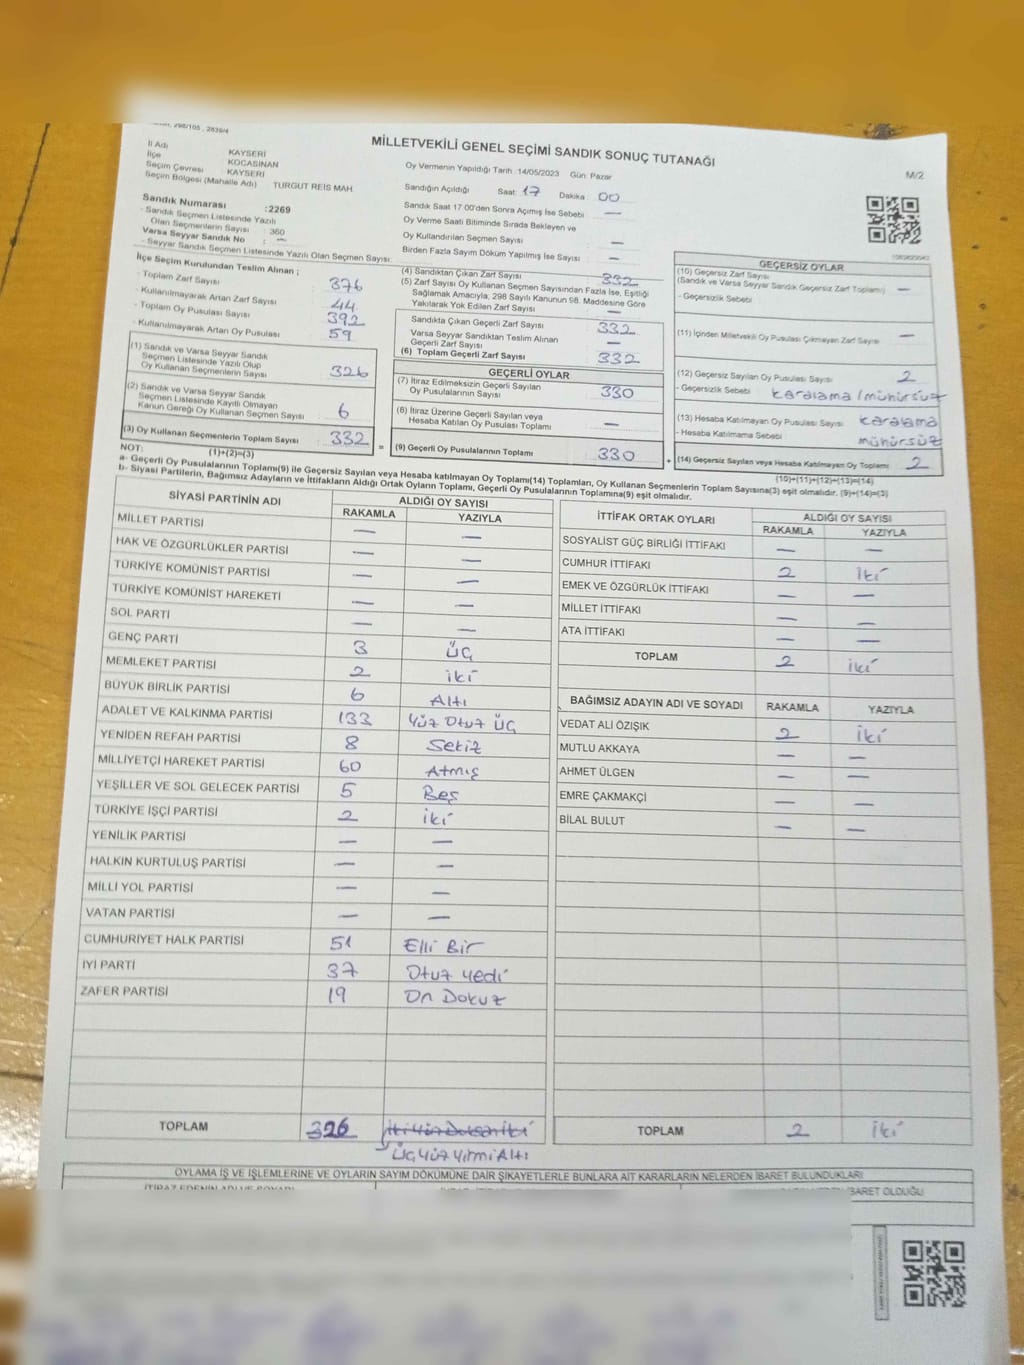 298/105 , 2839/4
MİLLETVEKİLİ GENEL SEÇİMİ SANDIK SONUÇ TUTANAĞI
M/2
İl Adı KAYSERİ
İlçe KOCASİNAN
Seçim Çevresi KAYSERİ
Seçim Bölgesi (Mahalle Adı) TURGUT REİS MAH
Sandık Numarası :2269
- Sandık Seçmen Listesinde Yazılı
Olan Seçmenlerin Sayısı : 360
Varsa Seyyar Sandık No : —
- Seyyar Sandık Seçmen Listesinde Yazılı Olan Seçmen Sayısı:
Oy Vermenin Yapıldığı Tarih :14/05/2023 Gün: Pazar
Sandığın Açıldığı Saat: 17 Dakika 00
Sandık Saat 17.00'den Sonra Açımış İse Sebebi —
Oy Verme Saati Bitiminde Sırada Bekleyen ve
Oy Kullandırılan Seçmen Sayısı —
Birden Fazla Sayım Döküm Yapılmış İse Sayısı —
İlçe Seçim Kurulundan Teslim Alınan ;
- Toplam Zarf Sayısı 376
- Kullanılmayarak Artan Zarf Sayısı 44
- Toplam Oy Pusulası Sayısı 392
- Kullanılmayarak Artan Oy Pusulası 59
(1) Sandık ve Varsa Seyyar Sandık
Seçmen Listesinde Yazılı Olup
Oy Kullanan Seçmenlerin Sayısı 326
(2) Sandık ve Varsa Seyyar Sandık
Seçmen Listesinde Kayıtlı Olmayan
Kanun Gereği Oy Kullanan Seçmen Sayısı 6
(3) Oy Kullanan Seçmenlerin Toplam Sayısı 332
(1)+(2)=(3)
(4) Sandıktan Çıkan Zarf Sayısı 332
(5) Zarf Sayısı Oy Kullanan Seçmen Sayısından Fazla İse, Eşitliği
Sağlamak Amacıyla; 298 Sayılı Kanunun 98. Maddesine Göre
Yakılarak Yok Edilen Zarf Sayısı —
Sandıkta Çıkan Geçerli Zarf Sayısı 332
Varsa Seyyar Sandıktan Teslim Alınan
Geçerli Zarf Sayısı —
(6) Toplam Geçerli Zarf Sayısı 332
GEÇERLİ OYLAR
(7) İtiraz Edilmeksizin Geçerli Sayılan
Oy Pusulalarının Sayısı 330
(8) İtiraz Üzerine Geçerli Sayılan veya
Hesaba Katılan Oy Pusulası Toplamı —
= (9) Geçerli Oy Pusulalarının Toplamı 330 +
GEÇERSİZ OYLAR
(10) Geçersiz Zarf Sayısı
(Sandık ve Varsa Seyyar Sandık Geçersiz Zarf Toplamı) —
- Geçersizlik Sebebi
(11) İçinden Milletvekili Oy Pusulası Çıkmayan Zarf Sayısı —
(12) Geçersiz Sayılan Oy Pusulası Sayısı 2
- Geçersizlik Sebebi karalama / mühürsüz
(13) Hesaba Katılmayan Oy Pusulası Sayısı karalama
- Hesaba Katılmama Sebebi mühürsüz
(14) Geçersiz Sayılan veya Hesaba Katılmayan Oy Toplamı 2
(10)+(11)+(12)+(13)=(14)
NOT:
a- Geçerli Oy Pusulalarının Toplamı(9) ile Geçersiz Sayılan veya Hesaba katılmayan Oy Toplamı(14) Toplamları, Oy Kullanan Seçmenlerin Toplam Sayısına(3) eşit olmalıdır. (9)+(14)=(3)
b- Siyasi Partilerin, Bağımsız Adayların ve İttifakların Aldığı Ortak Oyların Toplamı, Geçerli Oy Pusulalarının Toplamına(9) eşit olmalıdır.
SİYASİ PARTİNİN ADI ALDIĞI OY SAYISI
RAKAMLA YAZIYLA
MİLLET PARTİSİ — —
HAK VE ÖZGÜRLÜKLER PARTİSİ — —
TÜRKİYE KOMÜNİST PARTİSİ — —
TÜRKİYE KOMÜNİST HAREKETİ — —
SOL PARTİ — —
GENÇ PARTİ 3 ÜÇ
MEMLEKET PARTİSİ 2 iki
BÜYÜK BİRLİK PARTİSİ 6 Altı
ADALET VE KALKINMA PARTİSİ 133 Yüz Otuz Üç
YENİDEN REFAH PARTİSİ 8 Sekiz
MİLLİYETÇİ HAREKET PARTİSİ 60 Atmış
YEŞİLLER VE SOL GELECEK PARTİSİ 5 Beş
TÜRKİYE İŞÇİ PARTİSİ 2 iki
YENİLİK PARTİSİ — —
HALKIN KURTULUŞ PARTİSİ — —
MİLLİ YOL PARTİSİ — —
VATAN PARTİSİ — —
CUMHURİYET HALK PARTİSİ 51 Elli Bir
İYİ PARTİ 37 Otuz Yedi
ZAFER PARTİSİ 19 On Dokuz
TOPLAM 326
ÜçYüz YirmiAltı
İTTİFAK ORTAK OYLARI ALDIĞI OY SAYISI
RAKAMLA YAZIYLA
SOSYALİST GÜÇ BİRLİĞİ İTTİFAKI — —
CUMHUR İTTİFAKI 2 iki
EMEK VE ÖZGÜRLÜK İTTİFAKI — —
MİLLET İTTİFAKI — —
ATA İTTİFAKI — —
TOPLAM 2 iki
BAĞIMSIZ ADAYIN ADI VE SOYADI RAKAMLA YAZIYLA
VEDAT ALİ ÖZIŞIK 2 iki
MUTLU AKKAYA — —
AHMET ÜLGEN — —
EMRE ÇAKMAKÇİ — —
BİLAL BULUT — —
TOPLAM 2 iki
OYLAMA İŞ VE İŞLEMLERİNE VE OYLARIN SAYIM DÖKÜMÜNE DAİR ŞİKAYETLERLE BUNLARA AİT KARARLARIN NELERDEN İBARET BULUNDUKLARI
İBARET OLDUĞU